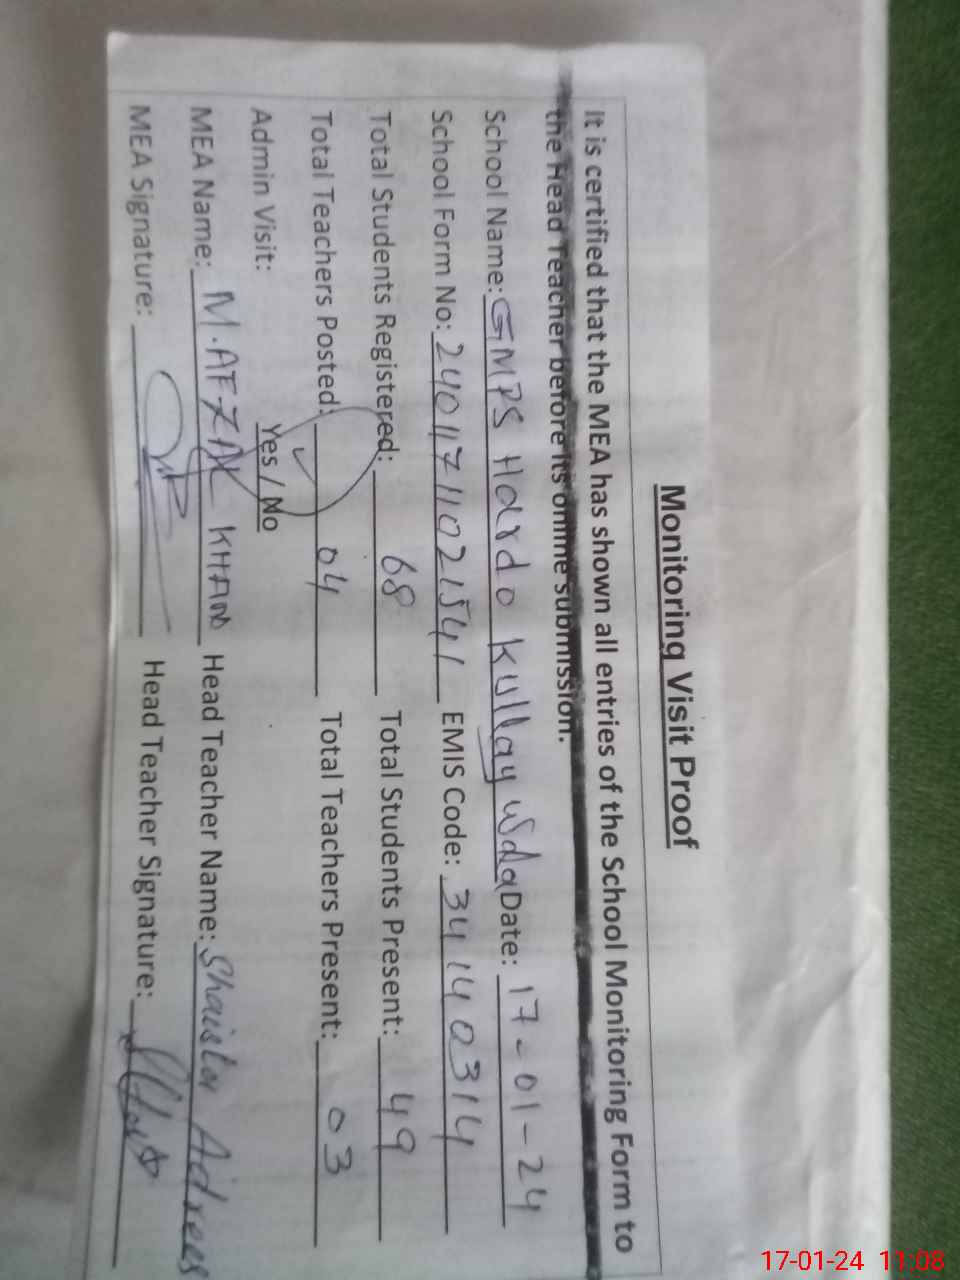 Monitoring Visit Proof
It is certified that the MEA has shown all entries of the School Monitoring Form to
the Head Teacher before its online submission.
School Name: GMPS Hardo kullay wala Date: 17-01-24
School Form No: 24011711021541 EMIS Code: 34140314
Total Students Registered: 68 Total Students Present: 49
Total Teachers Posted: 04 Total Teachers Present: 03
Admin Visit: Yes / No
MEA Name: M.AFZAL KHAN Head Teacher Name: Shaista Adrees
MEA Signature: Head Teacher Signature:
17-01-24 11:08